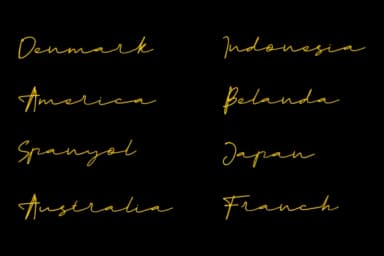 Denmark
America
Spanyol
Australia
Indonesia
Belanda
Japan
Franch